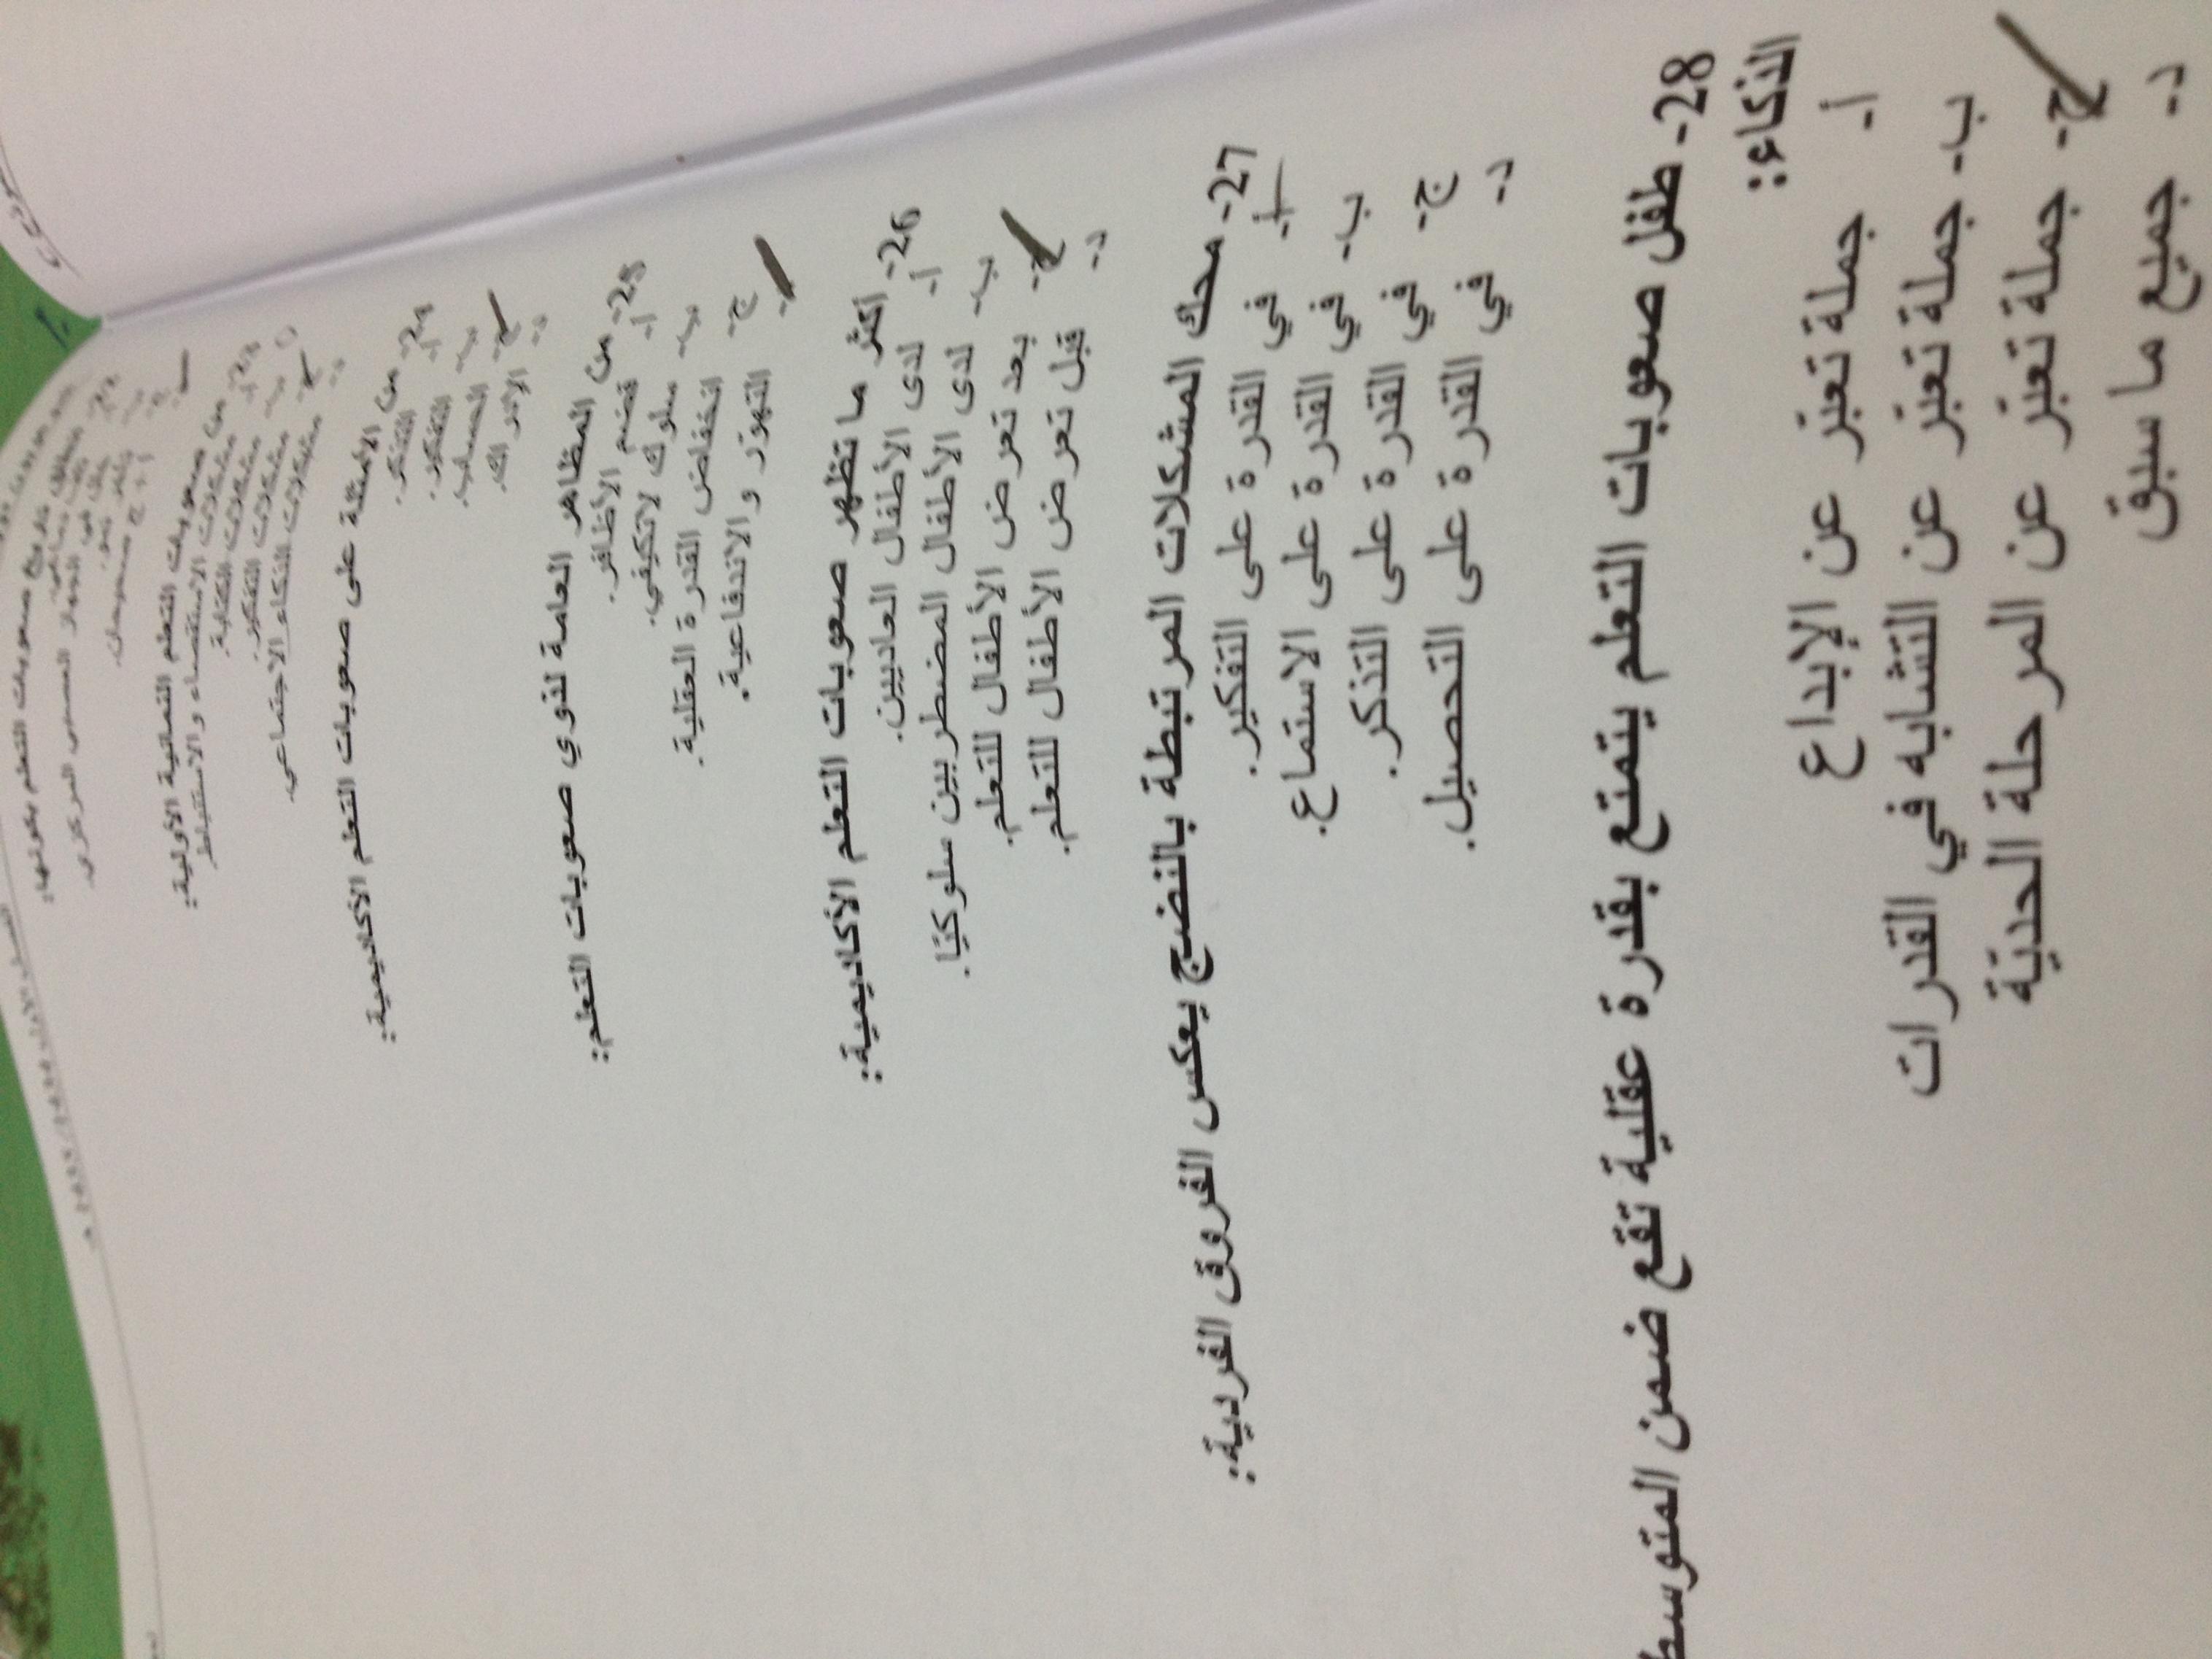 23- من صعوبات التعلم النمائية الأولية:
أ- مشكلات الاستقصاء والاستنباط
ب- مشكلات الكتابة.
ج- مشكلات التفكير.
د- مشكلات الذكاء الاجتماعي.
24- من الأمثلة على صعوبات التعلم الأكاديمية:
أ- التذكر.
ب- التفكير.
ج- الحساب.
د- الإدراك.
25- من المظاهر العامة لذوي صعوبات التعلم:
أ- قضم الأظافر.
ب- سلوك لاتكيفي.
ج- انخفاض القدرة العقلية.
د- التهوّر والاندفاعية.
26- أكثر ما تظهر صعوبات التعلم الأكاديمية:
أ- لدى الأطفال العاديين.
ب- لدى الأطفال المضطربين سلوكيّا.
ج- بعد تعرض الأطفال للتعلم.
د- قبل تعرض الأطفال للتعلم.
27- محك المشكلات المرتبطة بالنضج يعكس الفروق الفردية:
أ- في القدرة على التفكير.
ب- في القدرة على الاستماع.
ج- في القدرة على التذكر.
د- في القدرة على التحصيل.
28- طفل صعوبات التعلم يتمتع بقدرة عقلية تقع ضمن المتوسط
الذكاء:
أ- جملة تعبّر عن الإبداع
ب- جملة تعبّر عن التشابه في القدرات
ج- جملة تعبّر عن المرحلة الحديّة
د- جميع ما سبق